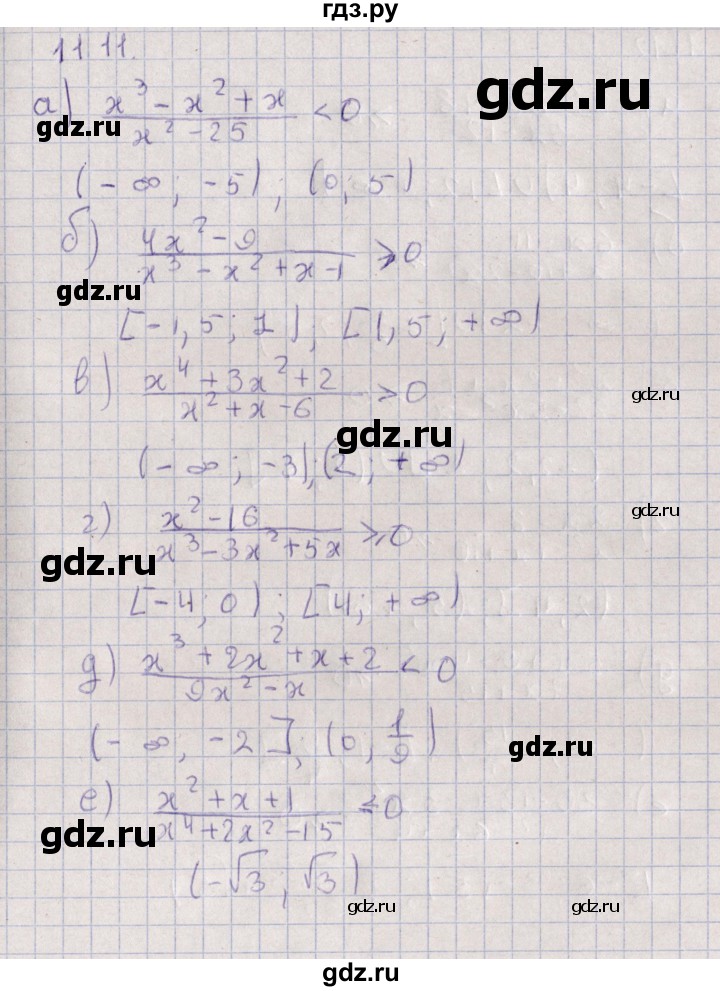 гдз.ру
11.11.
а) (x³ - x² + x)/(x² - 25) < 0
gdz.ru
gdz.ru
(-∞; -5); (0; 5)
б) (4x² - 9)/(x³ - x² + x - 1) ≥ 0
gdz.ru
[-1,5; 1); [1,5; +∞)
в) (x⁴ + 3x² + 2)/(x² + x - 6) > 0
gdz.ru
gdz.ru
(-∞; -3);(2; +∞)
г) (x² - 16)/(x³ - 3x² + 5x) ≥ 0
gdz.ru
gdz.ru
[-4; 0); [4; +∞)
д) (x³ + 2x² + x + 2)/(9x² - x) < 0
(-∞, -2]; (0; 1/9)
gdz.ru
е) (x² + x + 1)/(x⁴ + 2x² - 15) ≤ 0
gdz.ru
(-√3; √3)
gdz.ru
gdz.ru
gdz.ru